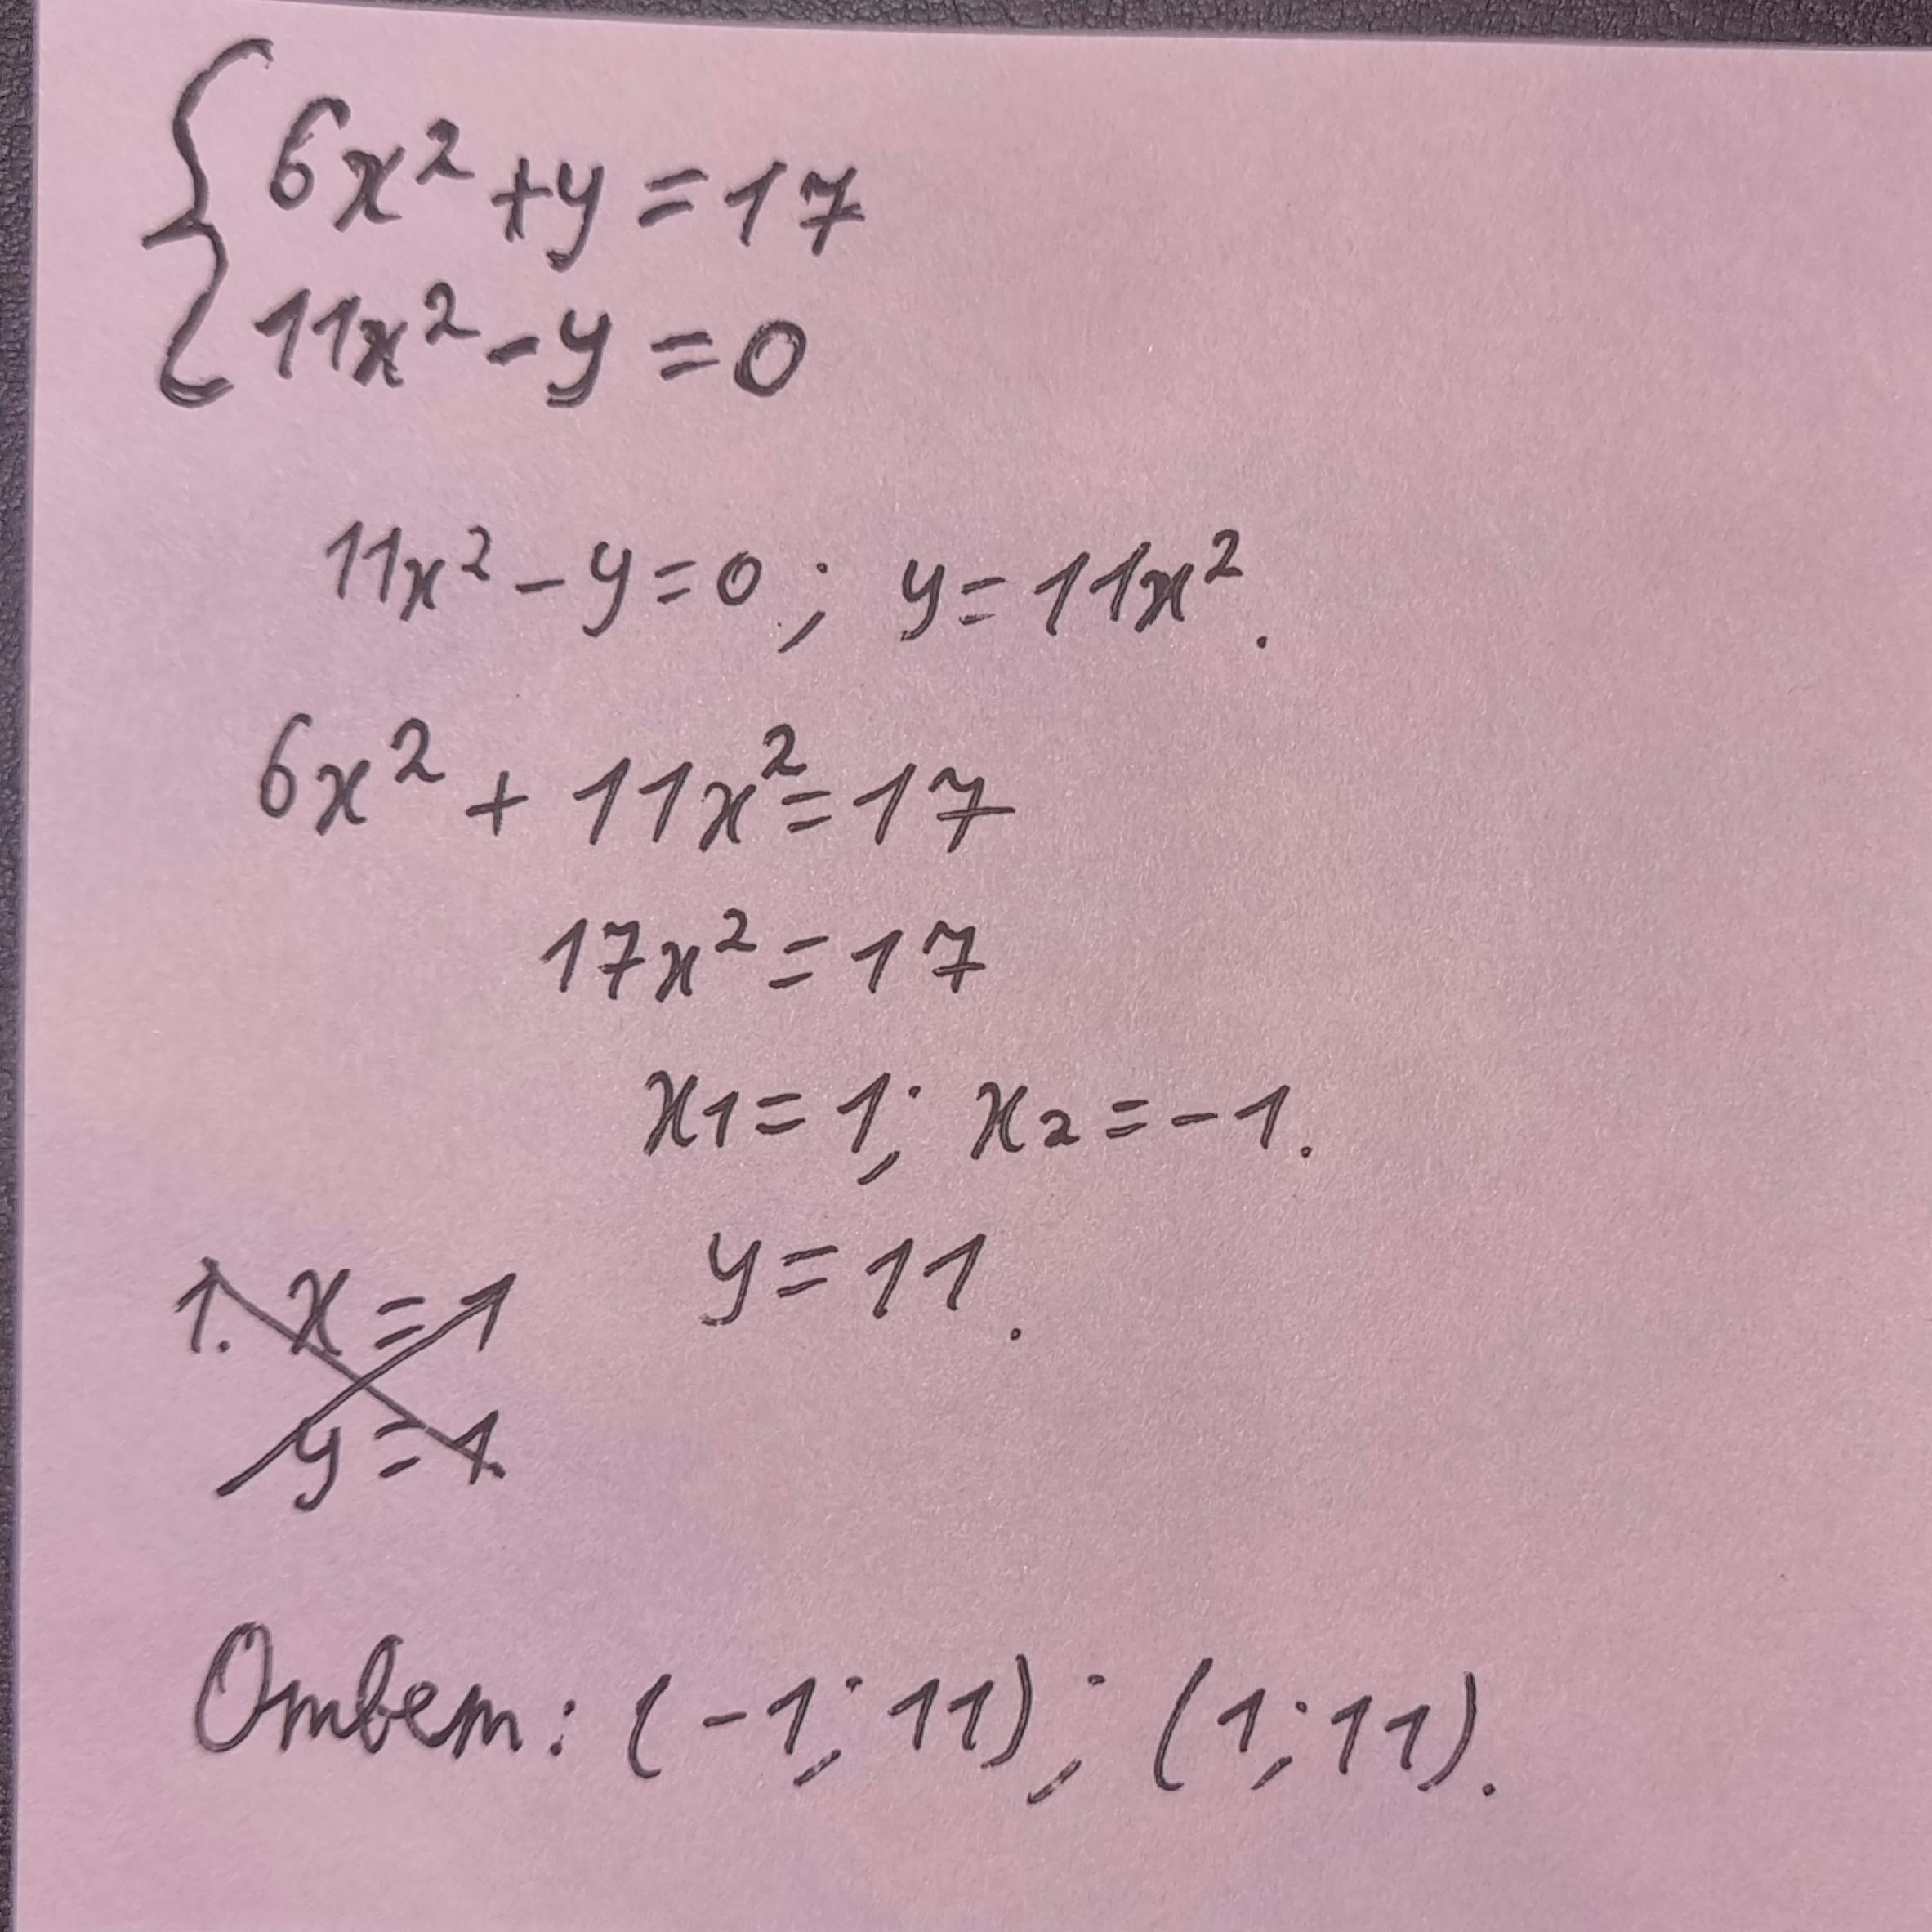 6x² + y = 17
11x² - y = 0
11x² - y = 0; y = 11x².
6x² + 11x² = 17
17x² = 17
x1 = 1; x2 = -1.
y = 11.
1. x = 1
y = 1.
Ответ: (-1; 11); (1; 11).